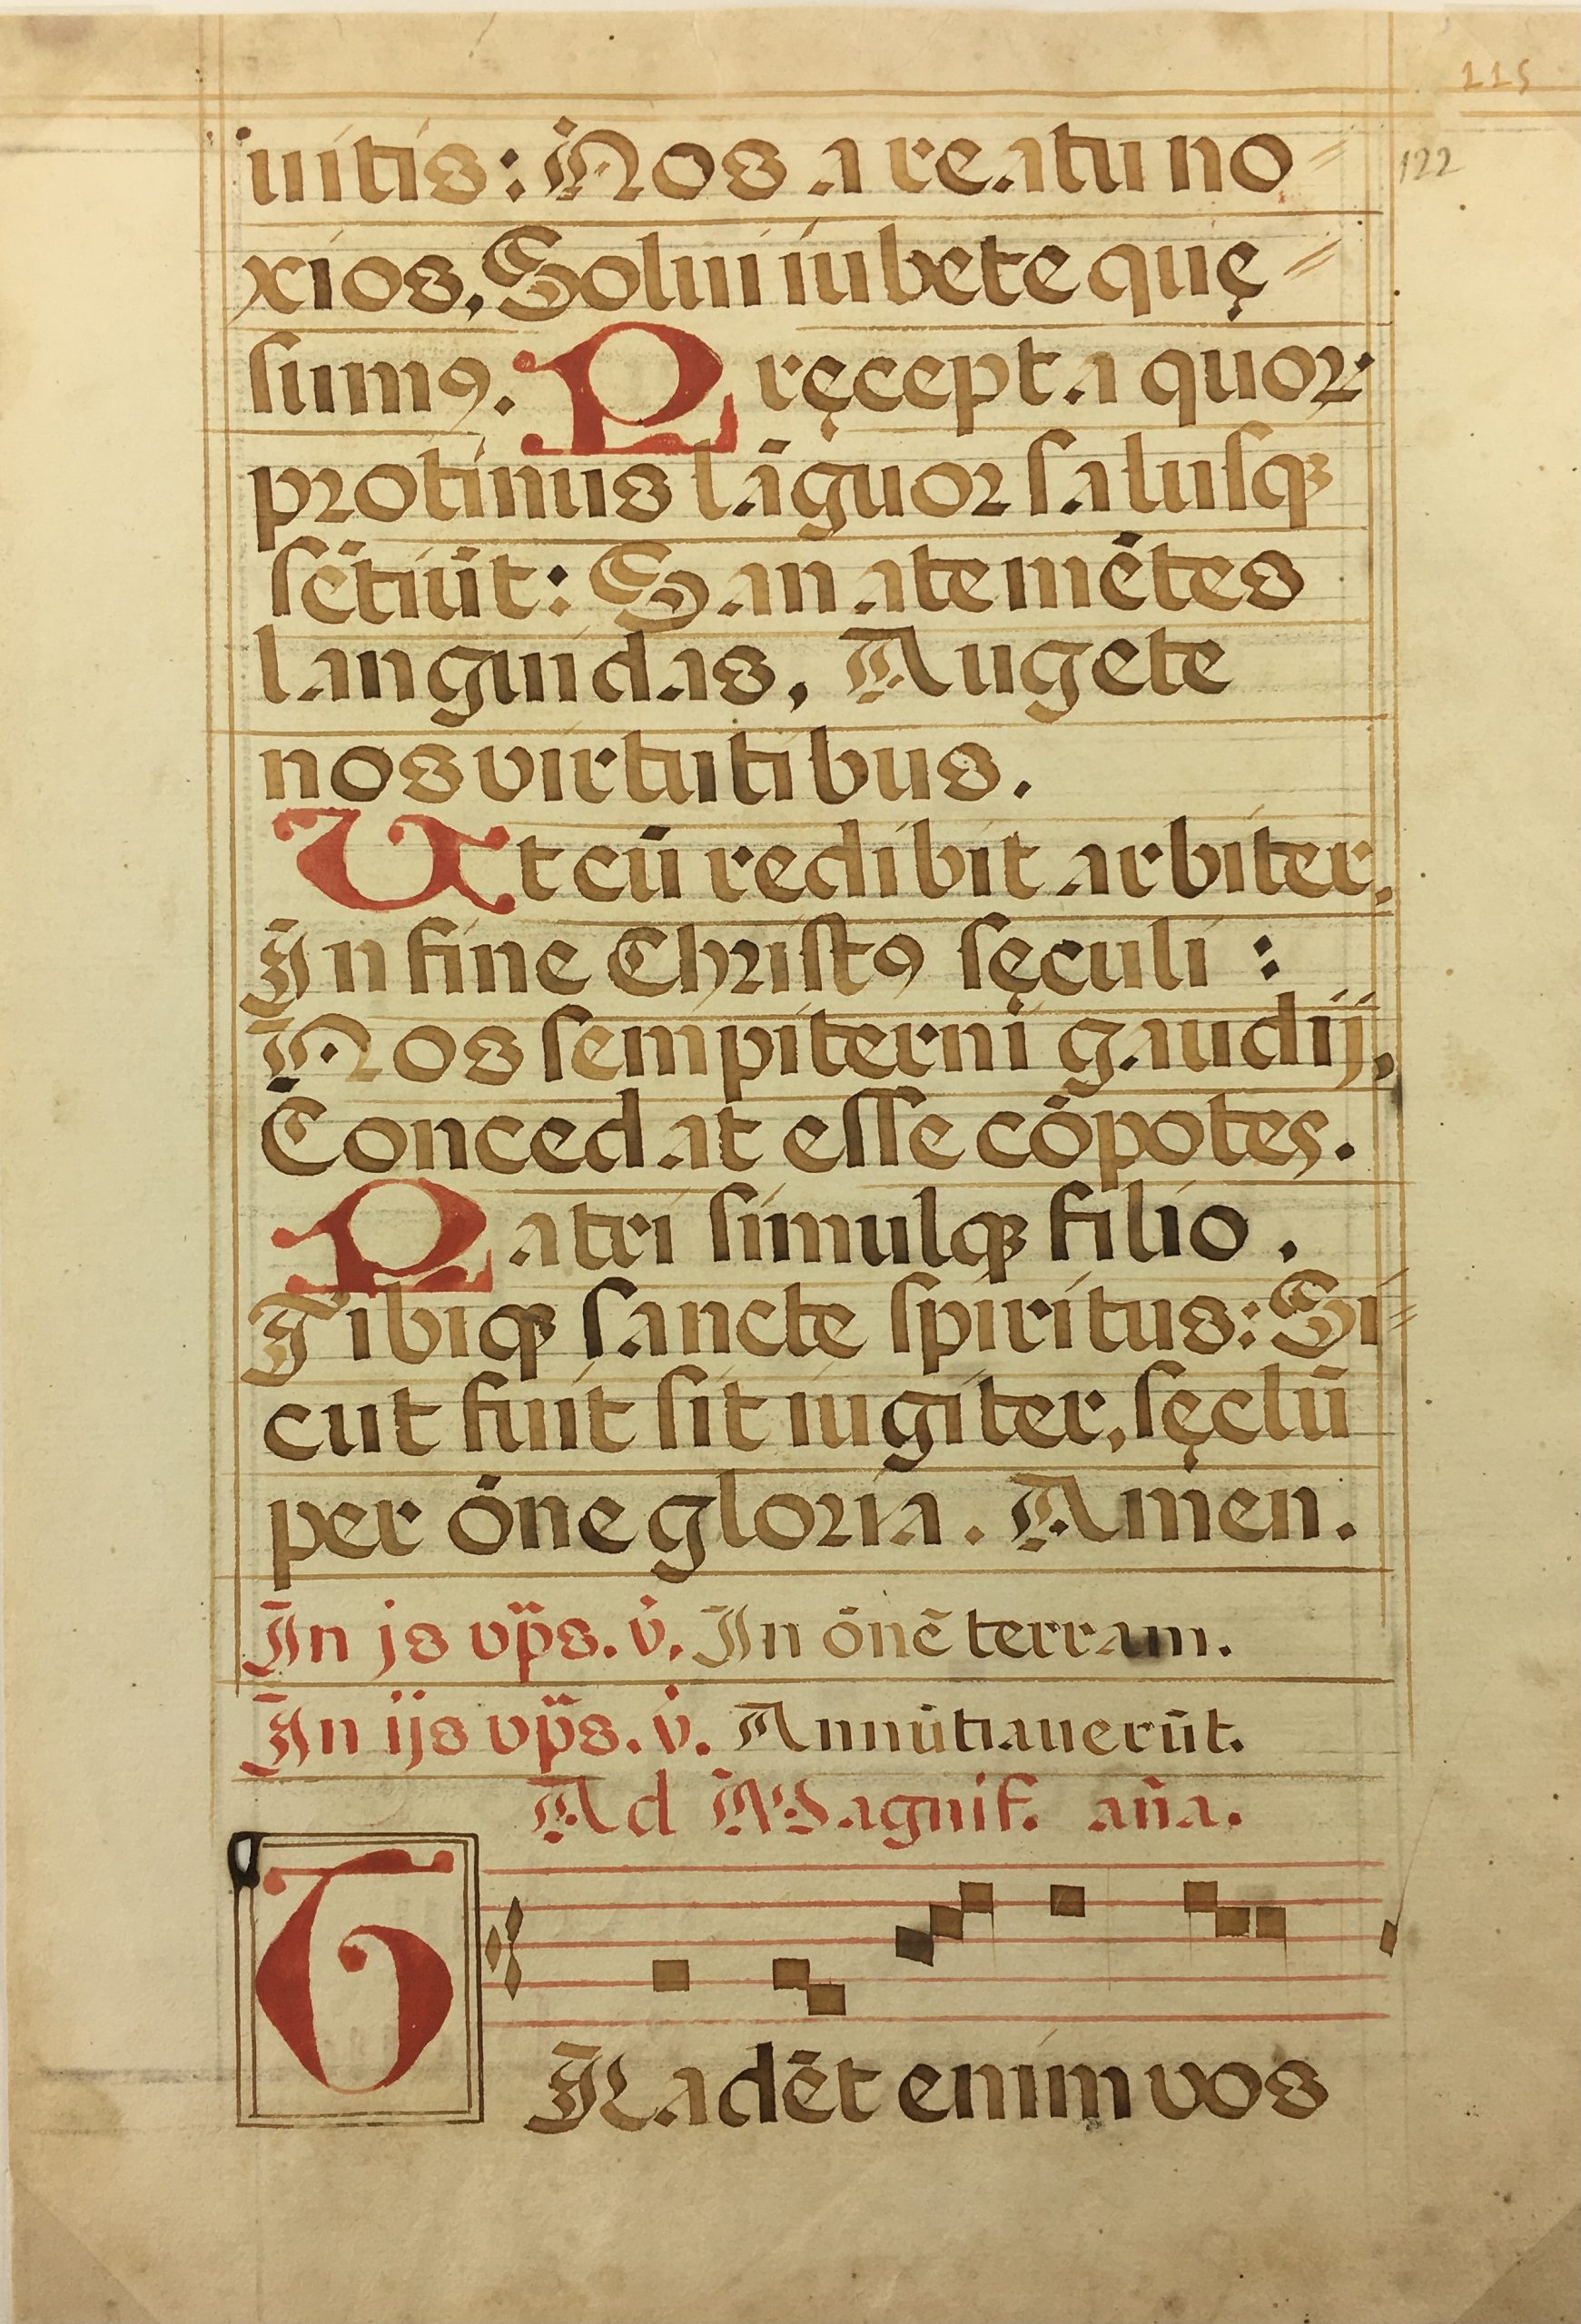 115
uitis: Nos a reatu no=
122
xios, Solui iubete quę=
sumꝰ. Pręcepta quoꝝ
protinus lāguor salusqꝫ
sētiūt: Sanate mētes
languidas, Augete
nos virtutibus.
Ut cū redibit arbiter,
In fine Christꝰ sęculi:
Nos sempiterni gaudij,
Concedat esse cōpotes.
Patri simulqꝫ filio.
Tibiqꝫ sancte spiritus: Si=
cut fuit sit iugiter, sęclū
per ōne gloria. Amen.
In js vp̄s. v̇. In ōnē terram.
In ijs vp̄s. v̇. Annūtiauerūt.
Ad Magnif. an̄a.
TRadēt enim vos